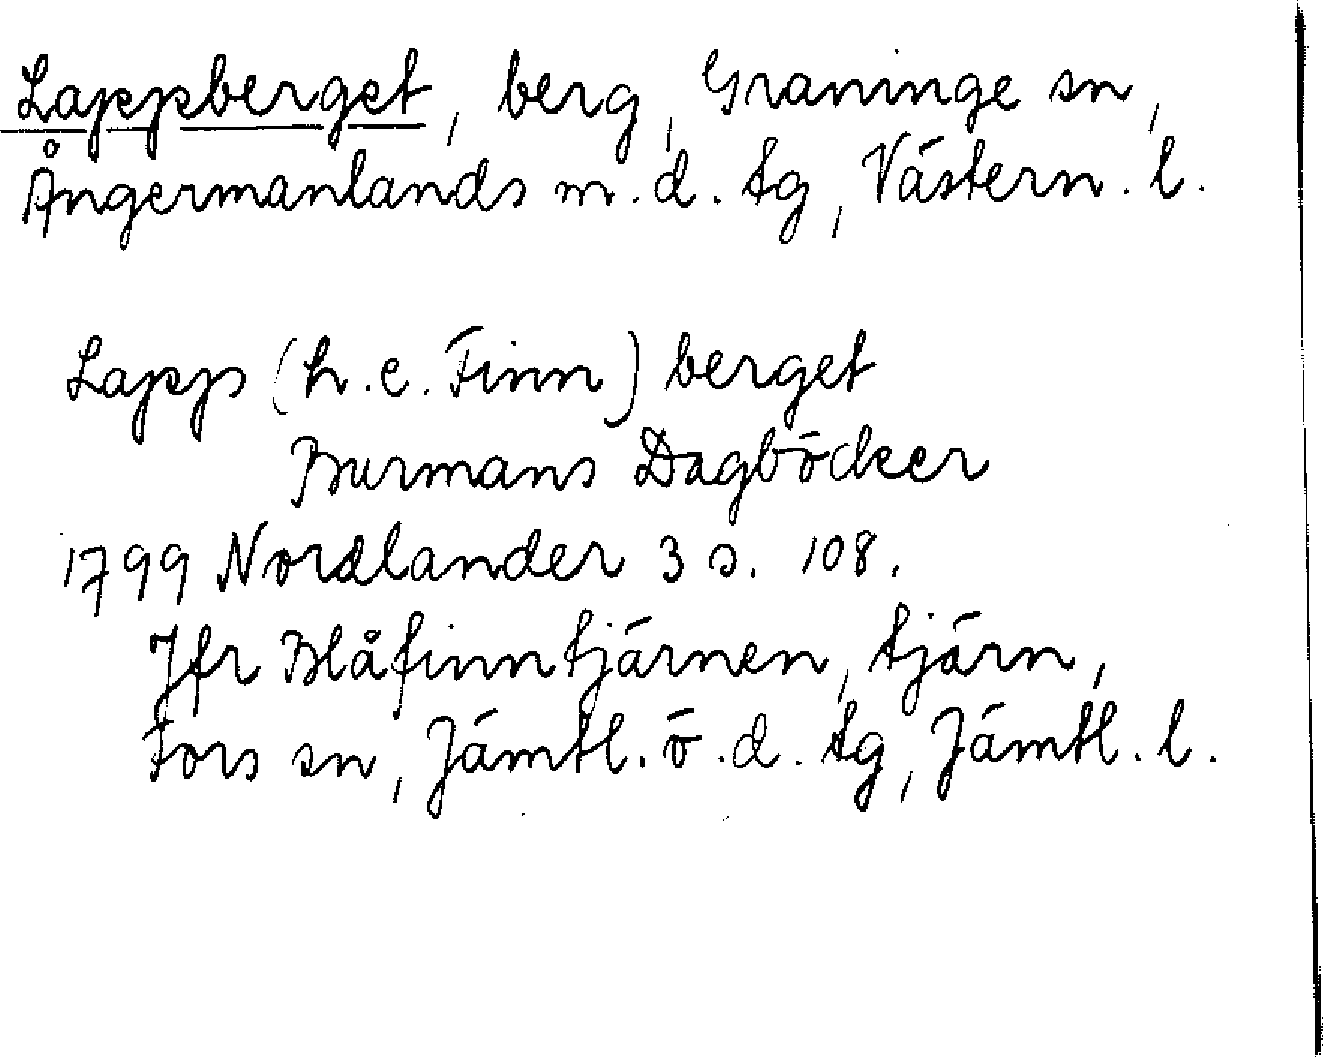 Lappberget, berg, Graninge sn,
Ångermanlands m.d. tg, Västern. l.
Lapp (h.e. Finn) berget
Burmans Dagböcker
1799 Nordlander 3 s. 108.
Jfr Blåfinntjärnen, tjärn,
Fors sn, Jämtl. ö.d. tg, Jämtl. l.